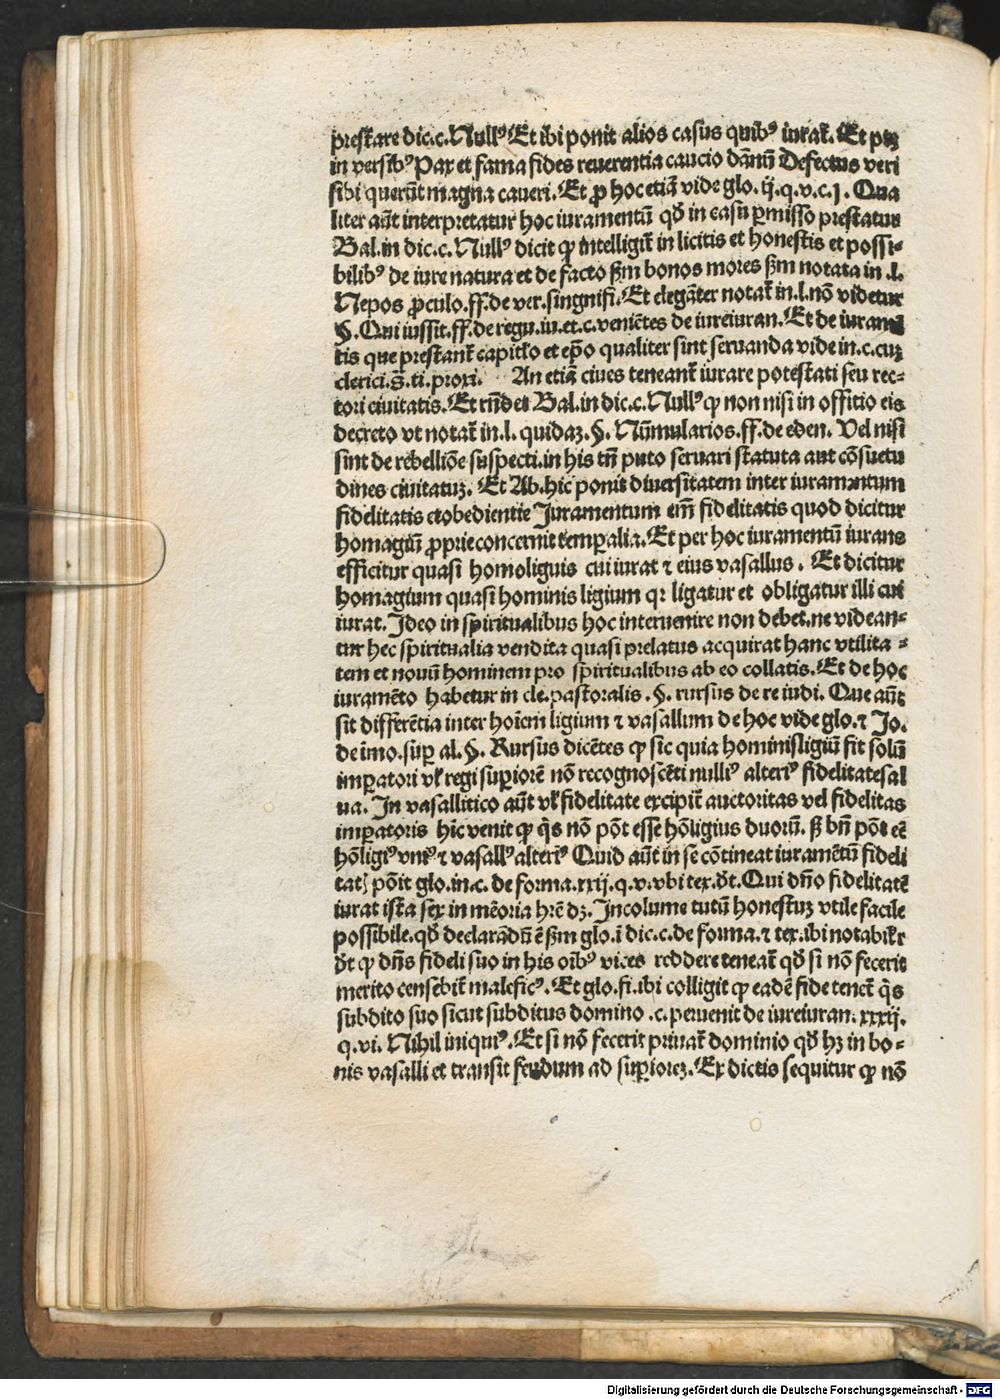 prestare dic.c.Nullꝰ Et ibi ponit alios casus quibꝰ iurat̄. Et ptꝫ
in versibꝰ Pax et fama fides reuerentia caucio dānū Defectus veri
sibi querūt magna caueri. Et ꝓ hoc etiā vide glo. ij.q.v.c.j. Qua
liter aūt interpretatur hoc iuramentū qđ in casu ꝑmisso prestatur
Bal.in dic.c. Nullꝰ dicit ꝙ intelligit̄ in licitis et honestis et possi⸗
bilibꝰ de iure natura et de facto ẜm bonos mores ẜm notata in .l.
Nepos ꝓculo.ff.de ver.singnifi. Et elegāter notat̄ in.l.nō videtur
§. Qui iussit.ff.de regu.iu.et.c.veniētes de iureiuran. Et de iuramē
tis que prestant̄ capitło et epō qualiter sint seruanda vide in.c.cuꝫ
clerici.s̄.ti.proxi. An etiā ciues teneant̄ iurare potestati seu rec⸗
tori ciuitatis. Et rn̄det Bal.in dic.c.Nullꝰ ꝙ non nisi in offitio eis
decreto vt notat̄ in.l. quidaꝫ.§. Nūmularios.ff.de eden. Vel nisi
sint de rebelliōe suspecti.in his tn̄ puto seruari statuta aut cōsuetu
dines ciuitatuꝫ. Et Ab.hic ponit diuersitatem inter iuramentum
fidelitatis et obedientie Juramentum em̄ fidelitatis quod dicitur
homagiū ꝓprie concernit temꝑalia. Et per hoc iuramentū iurans
efficitur quasi homoliguis cui iurat ⁊ eius vasallus. Et dicitur
homagium quasi hominis ligium qꝛ ligatur et obligatur illi cui
iurat. Ideo in spiritualibus hoc interuenire non debet.ne videan⸗
tur hec spiritualia vendita quasi prelatus acquirat hanc vtilita⸗
tem et nouū hominem pro spiritualibus ab eo collatis. Et de hoc
iuramēto habetur in cle.pastoralis .§. rursus de re iudi. Que aūt
sit differētia inter hoīem ligium ⁊ vasallum de hoc vide glo.⁊ Jo.
de imo.suꝑ al.§. Rursus dicētes ꝙ sic quia hominisligiū fit solū
imꝑatori vł regi suꝑiorē nō recognoscēti nulliꝰ alteriꝰ fidelitate sal
ua. In vasallitico aūt vł fidelitate excipit̄ auctoritas vel fidelitas
imꝑatoris hīc venit ꝙ q̇s nō pōt esse hōligius duorū. sꝫ bn̄ pōt eē
hōligiꝰ vniꝰ ⁊ vasallꝰ alteriꝰ Quid aūt in se cōtineat iuramētū fideli
tatꝭ pōit glo.in.c. de forma.xxij.q.v.vbi tex.đt. Qui dn̄o fidelitatē
iurat ista sex in mēoria hr̄e dꝫ. Incolume tutū honestuꝫ vtile facile
possibile.qđ declarādū ē ẜm glo.ī dic.c.de forma.⁊ tex.ibi notabił'r
đt ꝙ dn̄s fideli suo in his oībꝰ vices reddere teneat̄ qđ si nō fecerit
merito censebit̄ maleficꝰ. Et glo.fi.ibi colligit ꝙ eadē fide tenet̄ q̇s
subdito suo sicut subditus domino .c.peruenit de iureiuran. xxij.
q.vi. Nihil iniquiꝰ. Et si nō fecerit priuat̄ dominio qđ hꝫ in bo⸗
nis vasalli et transit feudum ad suꝑioreꝫ. Ex dictis sequitur ꝙ nō
Digitalisierung gefördert durch die Deutsche Forschungsgemeinschaft - DFG